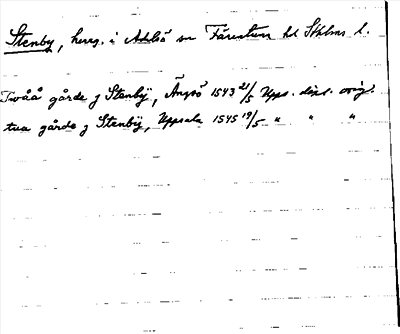 Stenby, herrg. i Adelsö sn Färentuna hd Sthlms l.
Twåå gårde j Stenbÿ, Ängsö 1543 21/5 Upps. dipl. orig.
tua gårde j Stenbÿ, Uppsala 1545 19/5 " " "